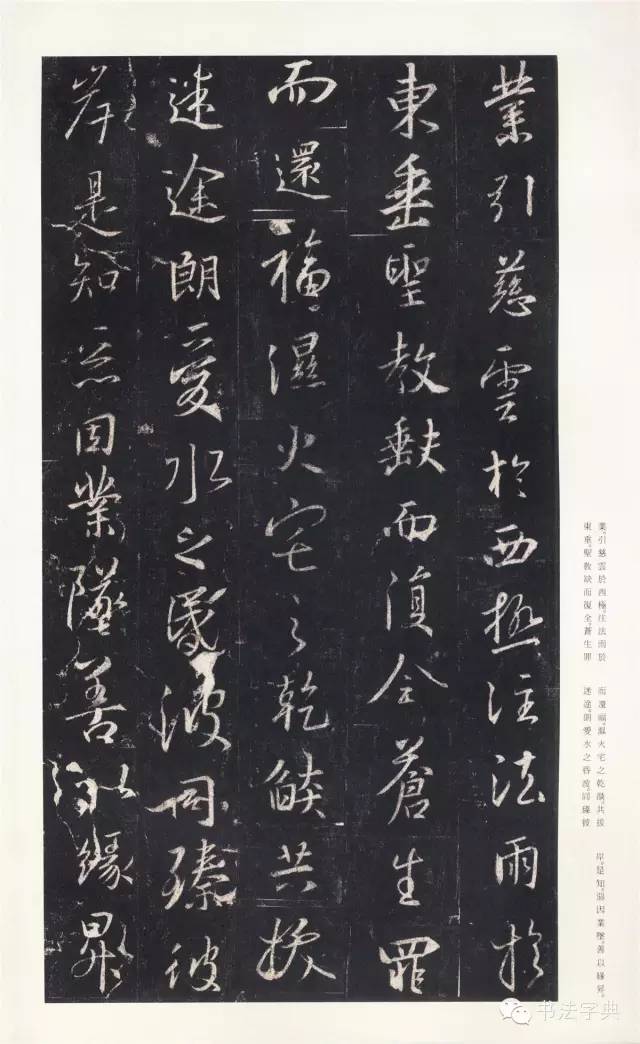 業引慈雲於西極注法雨於
東垂聖教缺而復全蒼生罪
而還福濕火宅之乾焰共拔
迷途朗愛水之昏波同臻彼
岸是知惡因業墜善以緣昇
業。引慈雲於西極，注法雨於
東垂。聖教缺而復全，蒼生罪
而還福。濕火宅之乾焰，共拔
迷途。朗愛水之昏波，同臻彼
岸。是知，惡因業墜，善以緣昇。
书法字典